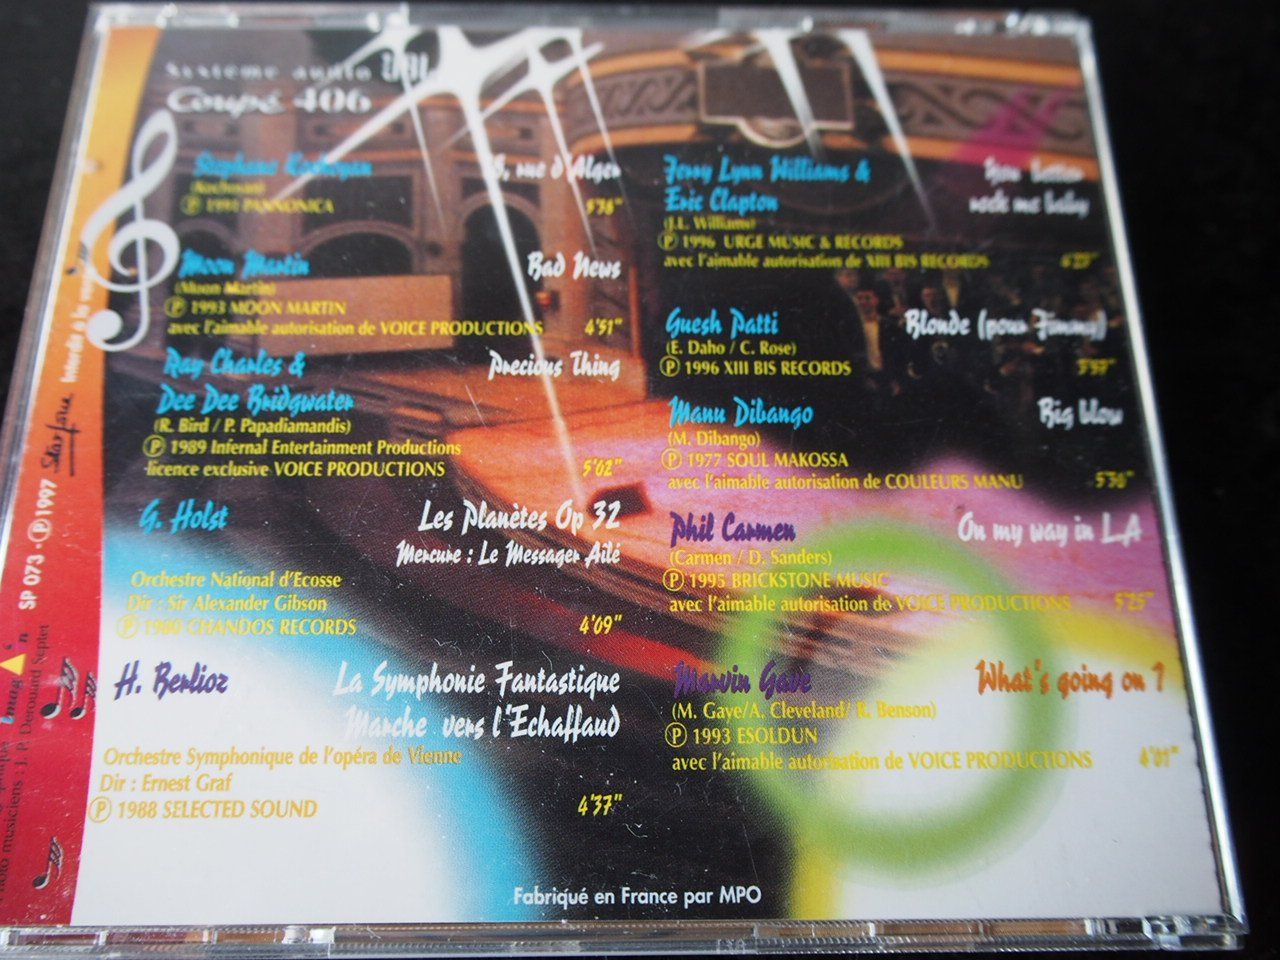 Système audio JBL
Coupé 406
Stephane Kochoyan
8, rue d'Alger
(Kochoyan)
Ⓟ 1994 PANNONICA
5'38"
Moon Martin
Bad News
(Moon Martin)
Ⓟ 1993 MOON MARTIN
avec l'aimable autorisation de VOICE PRODUCTIONS 4'51"
Ray Charles &
Precious Thing
Dee Dee Bridgwater
(R. Bird / P. Papadiamandis)
Ⓟ 1989 Infernal Entertainment Productions
licence exclusive VOICE PRODUCTIONS 5'02"
G. Holst
Les Planètes Op 32
Mercure : Le Messager Ailé
Orchestre National d'Ecosse
Dir : Sir Alexander Gibson
Ⓟ 1980 CHANDOS RECORDS 4'09"
H. Berlioz
La Symphonie Fantastique
Marche vers l'Echaffaud
Orchestre Symphonique de l'opéra de Vienne
Dir : Ernest Graf
Ⓟ 1988 SELECTED SOUND 4'37"
Jerry Lynn Williams &
You better
Eric Clapton
rock me baby
(J.L. Williams)
Ⓟ 1996 URGE MUSIC & RECORDS
avec l'aimable autorisation de XIII BIS RECORDS
Guesh Patti
Blonde (pour Jimmy)
(E. Daho / C. Rose)
Ⓟ 1996 XIII BIS RECORDS
Manu Dibango
Big blow
(M. Dibango)
Ⓟ 1977 SOUL MAKOSSA
avec l'aimable autorisation de COULEURS MANU 5'36"
Phil Carmen
On my way in LA
(Carmen / D. Sanders)
Ⓟ 1995 BRICKSTONE MUSIC
avec l'aimable autorisation de VOICE PRODUCTIONS 5'25"
Marvin Gaye
What's going on ?
(M. Gaye/A. Cleveland/ R. Benson)
Ⓟ 1993 ESOLDUN
avec l'aimable autorisation de VOICE PRODUCTIONS 4'01"
Fabriqué en France par MPO
SP 073 - Ⓟ 1997 Starfone Interdit à la
musiciens : J. P. Derouard Septet